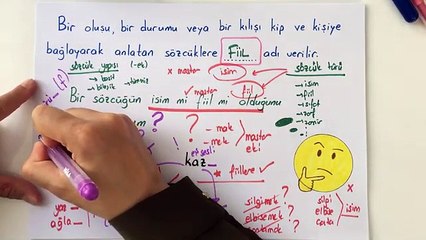 Bir oluşu, bir durumu veya bir kılışı kip ve kişiye
bağlayarak anlatan sözcüklere FİİL adı verilir.
sözcük yapısı (-ek)
x mastar
isim
sözcük türü
→ basit
→ türemiş
→ bileşik
✓ mastar
fiil
→ isim
→ fiil
→ sıfat
→ zarf
→ zamir
Bir sözcüğün isim mi fiil mi olduğunu
(f)
?
?
- mak
- mek
mastar
eki!
eş sesli
kaz_
* fiillere ✓
yaz_
ağla_
silgimek
elbisemek
?
silgi
elbise
çanta
x
isim